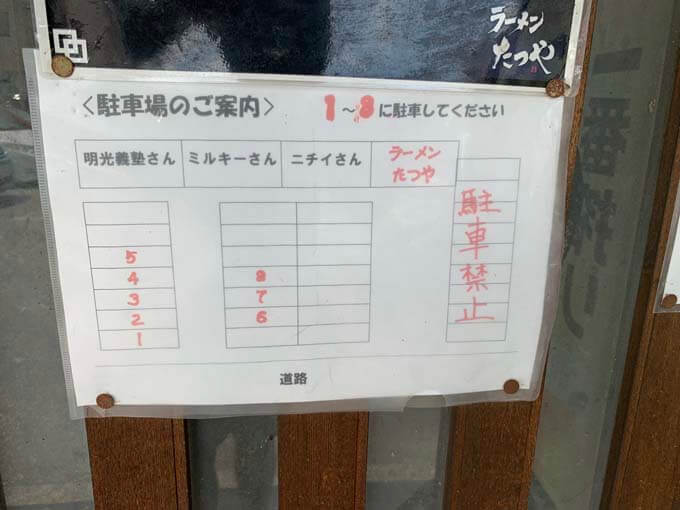 ラーメン
たつや
<駐車場のご案内> 1~8に駐車してください
明光義塾さん ミルキーさん ニチイさん ラーメン
たつや
駐車禁止
5
4 8
3 7
2 6
1
道路
一番搾り